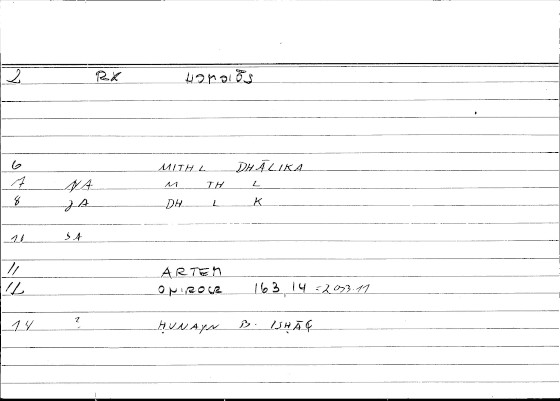 2 RX
6 MITHL DHĀLIKA
7 NA M TH L
8 JA DH L K
10 SA
11 ARTEM
12 ONIROCR 163,14
14 ? ḤUNAYN B. ISḤĀQ